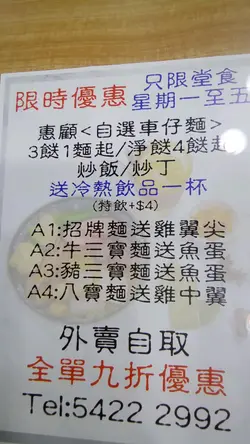 只限堂食
限時優惠 星期一至五
惠顧<自選車仔麵>
3餸1麵起/淨餸4餸起
炒飯/炒丁
送冷熱飲品一杯
(特飲+$4)
A1:招牌麵送雞翼尖
A2:牛三寶麵送魚蛋
A3:豬三寶麵送魚蛋
A4:八寶麵送雞中翼
外賣自取
全單九折優惠
Tel:5422 2992